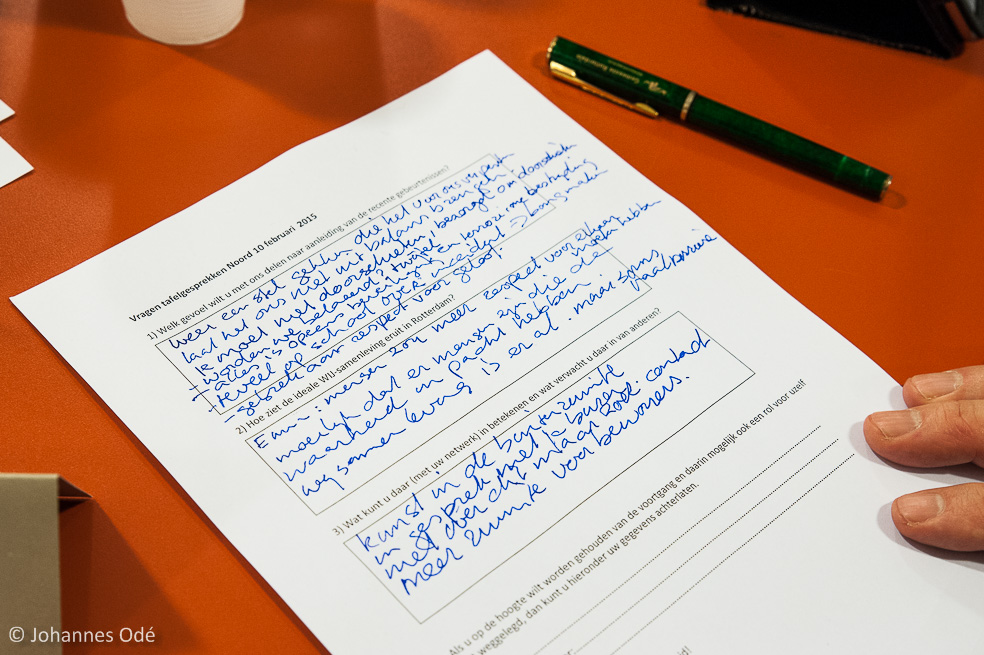 Vragen tafelgesprekken Noord 10 februari 2015
1) Welk gevoel wilt u met ons delen naar aanleiding van de recente gebeurtenissen?
weer een stel gekken die het voor ons verpest
laat het ons niet uit balans brengen
je moet niet doorschieten, bezorgd om doorschieten
- worden we belazerd? twijfel
- alles is opeens beveiliging en terrorisme bestrijding
- teveel op school over
- gebrek aan respect voor geloof.
2) Hoe ziet de ideale WIJ-samenleving eruit in Rotterdam?
mensen zou meer respect voor elkaar
moeilijk dat er mensen zijn die de
waarheid in pacht hebben
wij samenleving is er al. maar soms
3) Wat kunt u daar (met uw netwerk) in betekenen en wat verwacht u daar in van anderen?
kunst in de buitenruimte
in gesprek met je buren. contact
met over de
meer ruimte voor bewoners.
Als u op de hoogte wilt worden gehouden van de voortgang en daarin mogelijk ook een rol voor uzelf
weggelegd, dan kunt u hieronder uw gegevens achterlaten.
© Johannes Odé